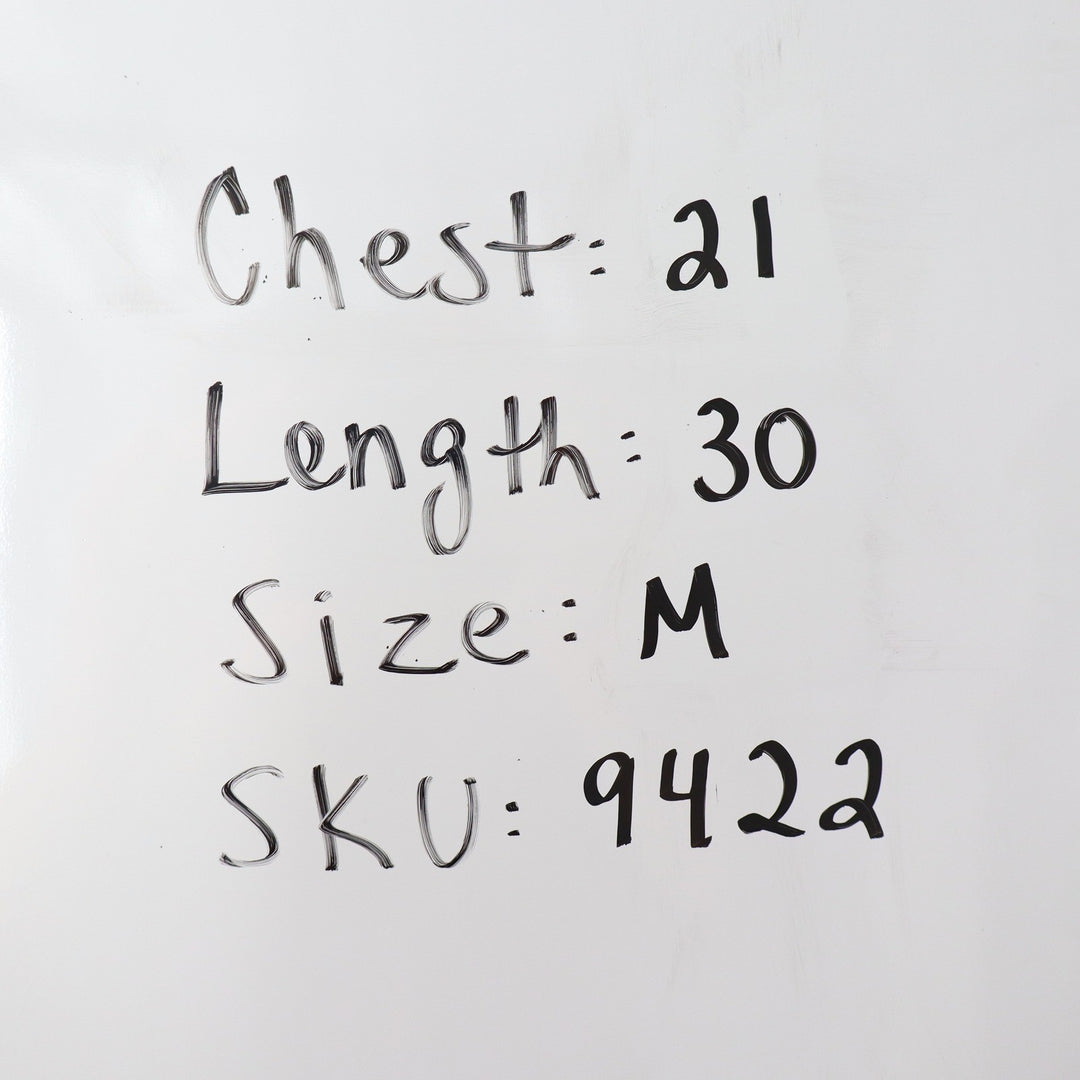 Chest: 21
Length: 30
Size: M
SKU: 9422